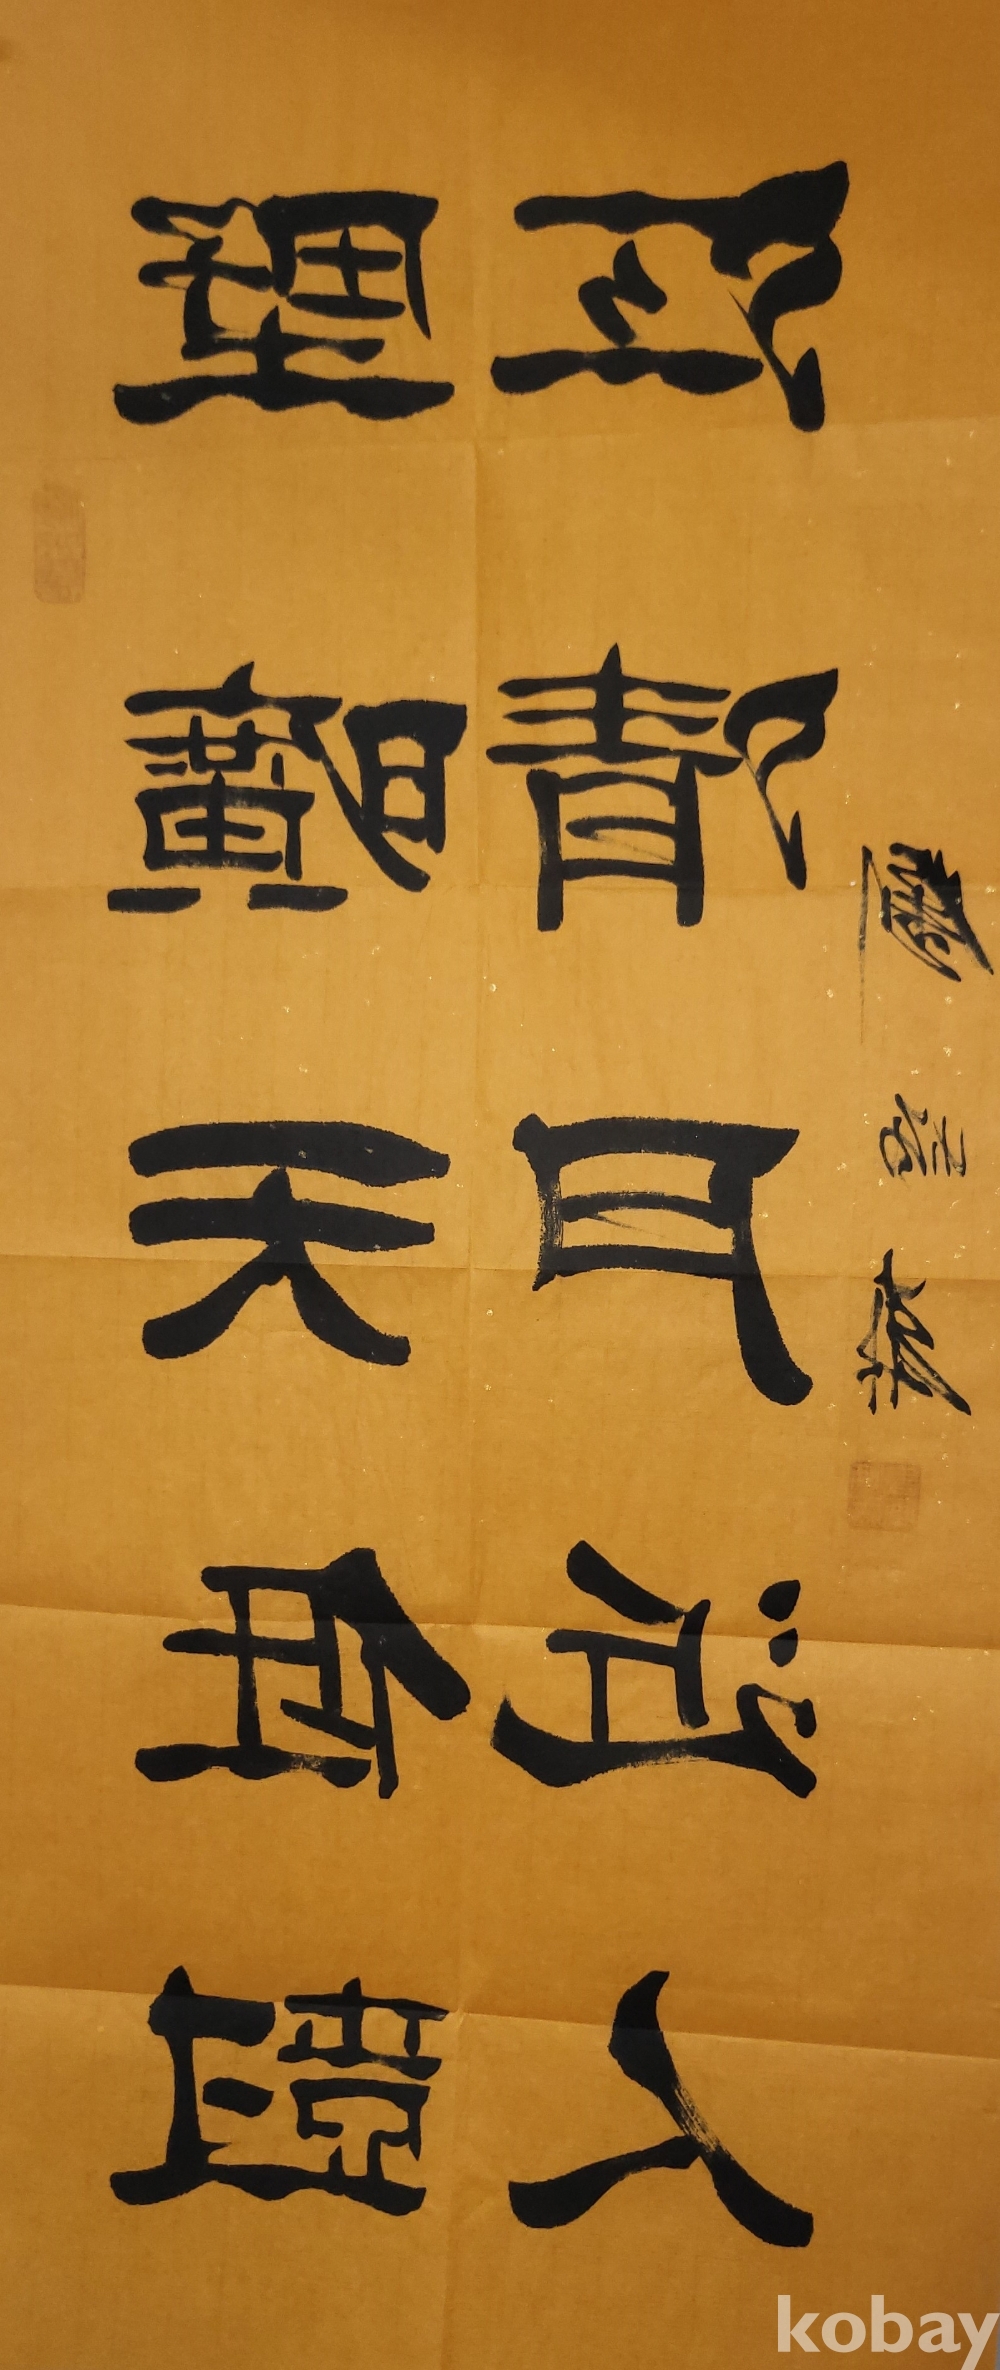 野曠天低樹
江清月近人
kobay